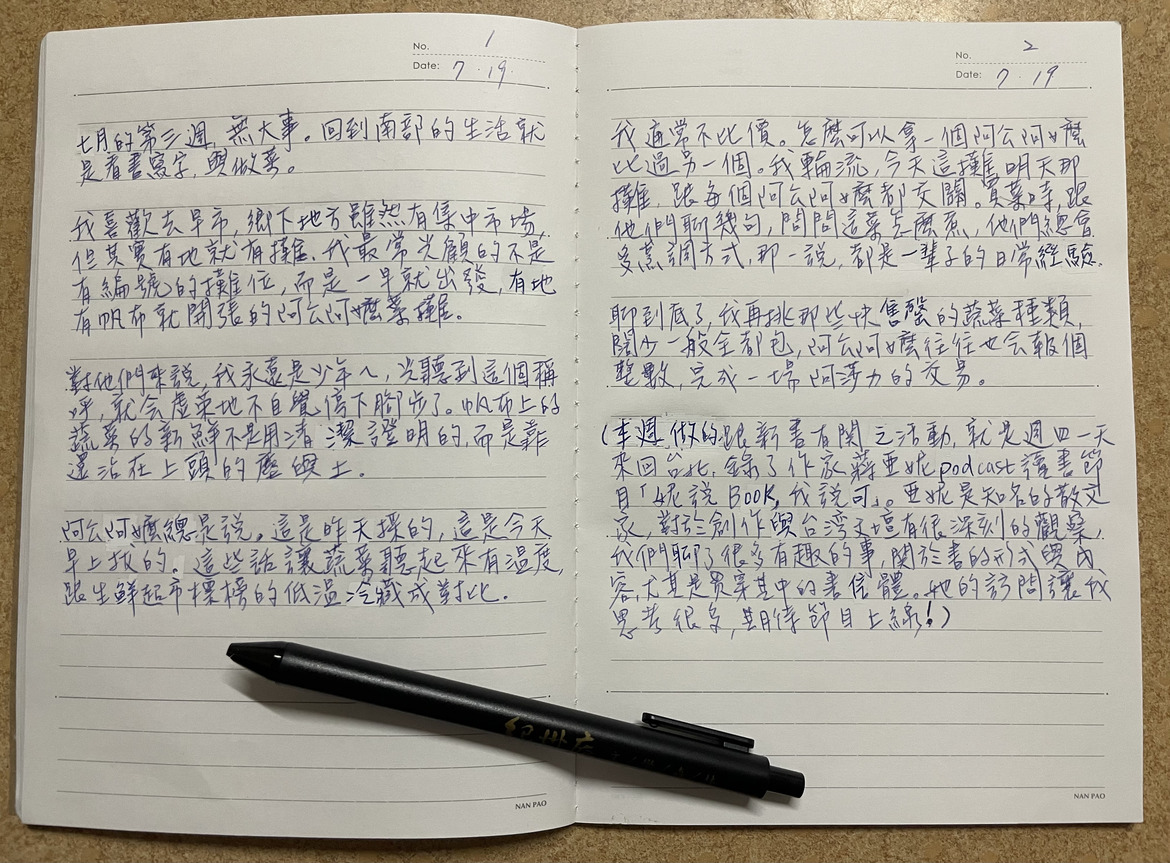 No. 1
Date: 7.19.
七月的第三週,無大事。回到南部的生活就
是看書寫字,與做菜。
我喜歡去早市,鄉下地方雖然有集中市場,
但其實有地就有攤.我最常光顧的不是
有編號的攤位,而是一早就出發,有地
有帆布就開張的阿公阿嬤菜攤。
對他們來說,我永遠是少年ㄟ,光聽到這個稱
呼,就会虛榮地不自覺停下腳步了。帆布上的
蔬菜的新鮮不是用清潔證明的,而是靠
還沾在上頭的塵與土。
阿公阿嬤總是說。這是昨天採的,這是今天
早上拔的。這些話讓蔬菜聽起來有溫度,
跟生鮮超市標榜的低溫冷藏成對比.
No. 2
Date: 7.19
我通常不比價。怎麼可以拿一個阿公阿嬤
比過另一個。我輪流,今天這攤明天那
攤,跟每個阿公阿嬤都交關。買菜時,跟
他們聊幾句,問問這菜怎麼煮,他們總會
烹調方式,那一說,都是一輩子的日常經驗.
聊到底了,我再挑那些快售罄的蔬菜種類,
闊少一般全都包,阿公阿嬤往往也会報個
整數,完成一場阿莎力的交易。
(本週做的跟新書有關之活動,就是週四一天
來回台北,錄了作家蔣亞妮podcast讀書節
目「妮說BOOK,我說可」。亞妮是知名的散文
家,對於創作與台湾文壇有很深刻的觀察,
我們聊了很多有趣的事,關於書的形式與內
容,尤其是貫穿其中的書信體。她的訪問讓我
思考很多,期待節目上線!)
紀州庵
NAN PAO
NAN PAO